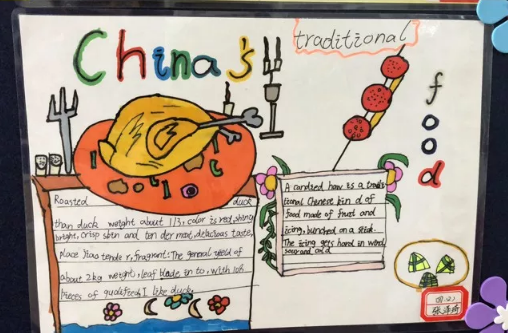 China's
traditional
food
Roasted duck
than duck weight about 1/3, color is red, shiny
bright, crisp skin and ten der meat, delicious taste,
place Xiao tende r, fragment: The general yield of
about 2kg weight, leaf blade in to, with 108
pieces of qualified, I like duck.
A candied haw is a tradi
tional Chinese kin d of
food made of fruit and
icing, bunched on a stick.
The icing gets hard in wind,
sour and old